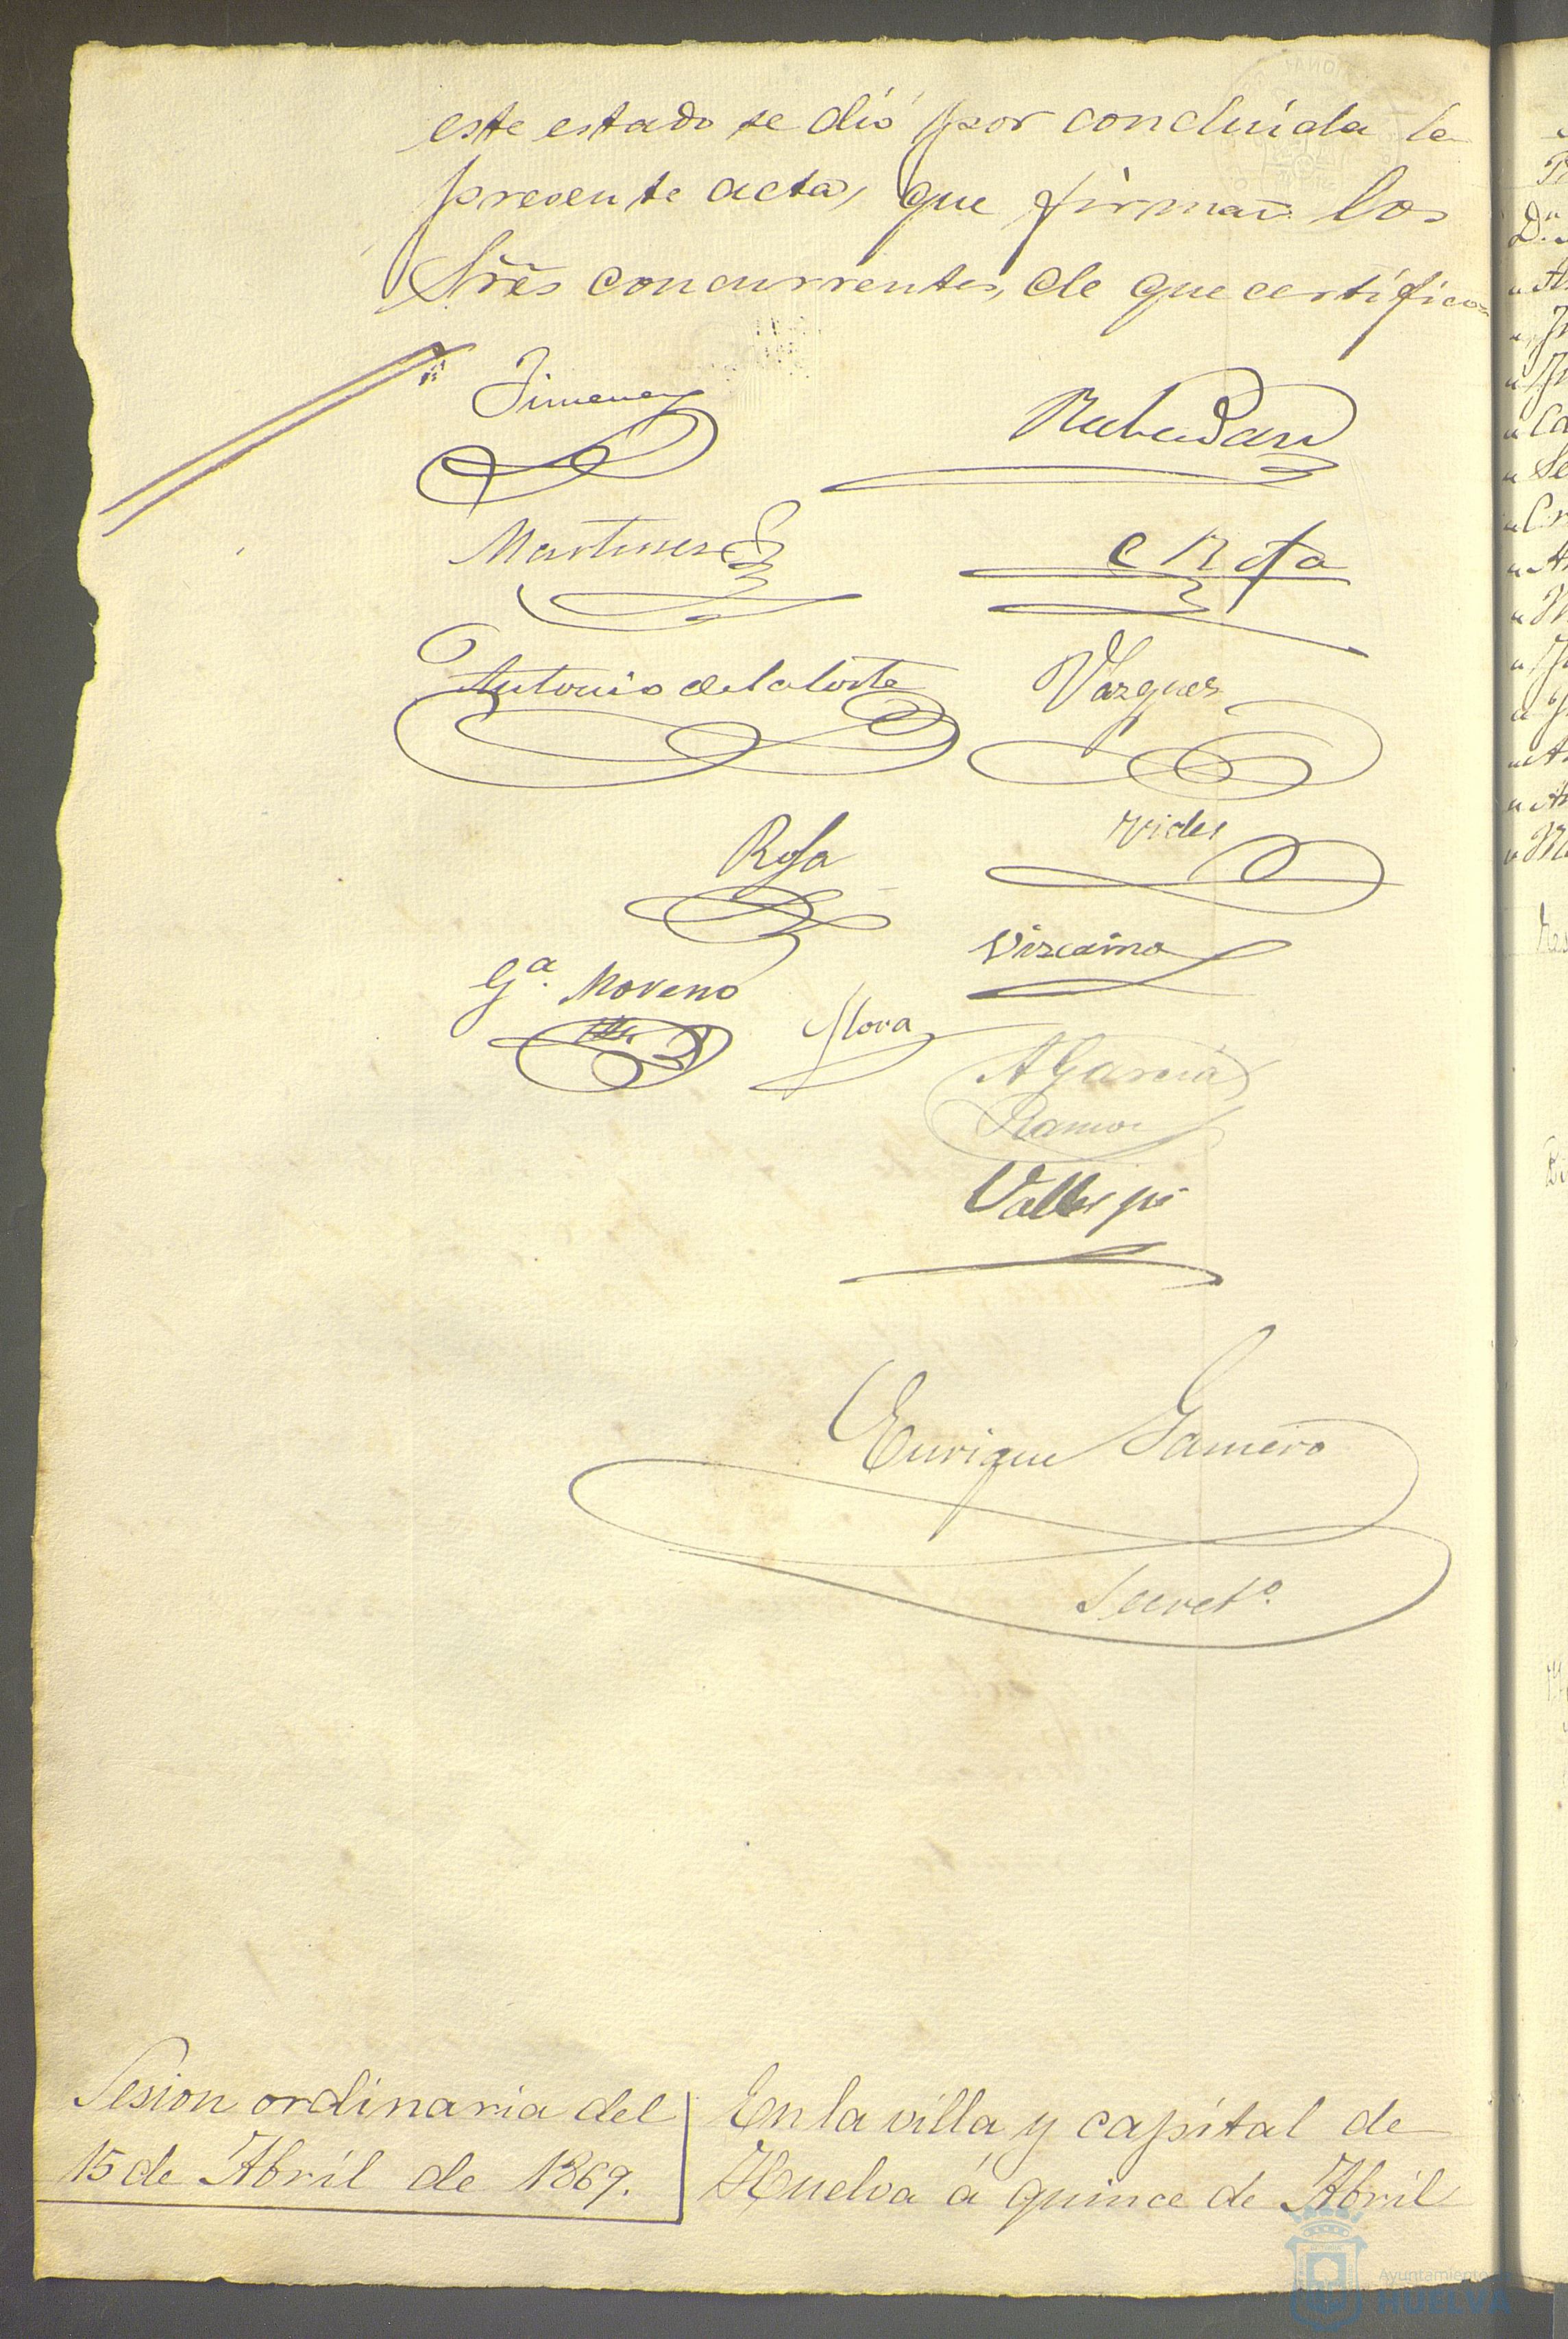 este estado se dió por concluida la
presente acta, que firman los
Sres concurrentes, de que certifico
Jimenez
Rebadan
Martinez
C Rofa
Antonio de la Corte
Vazquez
Rofa
Vides
Vizcaino
Gª. Moreno
Mora
A Garcia
Ramos
Vallespi
Enrique Gamero
Secretº.
Sesion ordinaria del
15 de Abril de 1869.
En la villa y capital de
Huelva á quince de Abril
Ayuntamiento
HUELVA